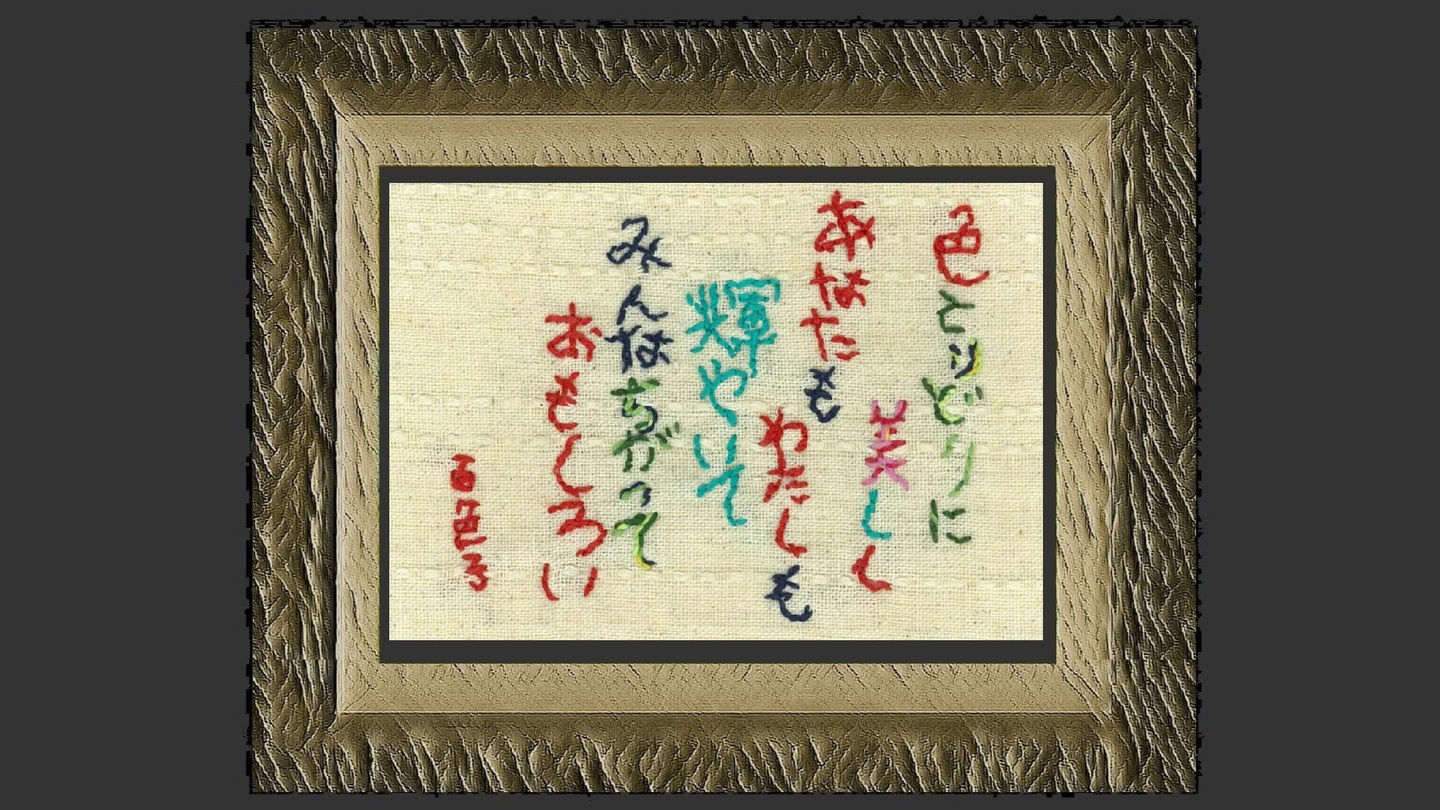 色とりどりに
美しく
あなたも
わたしも
輝やいて
みんなちがって
おもしろい